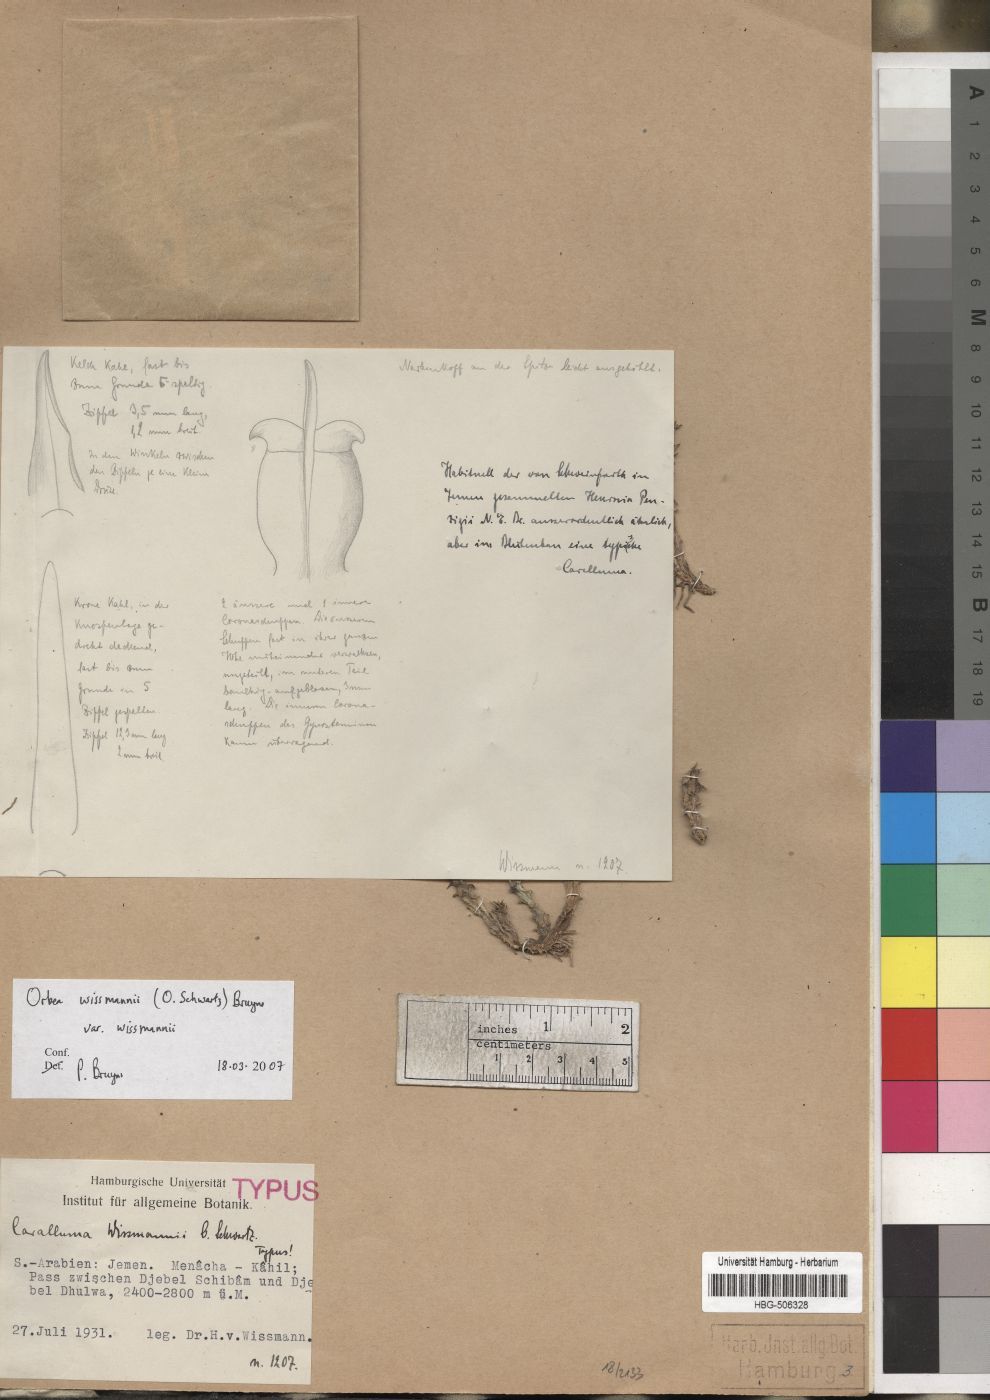 Kelch kahl, fast bis
zum Grunde 5 spaltig.
Zipfel 3,5 mm lang,
1,2 mm breit.
In den Winkeln zwischen
den Zipfeln je eine kleine
Drüse.
Narbenkopf an der Spitze leicht ausgehöhlt.
Habituell der von Schweinfurth in
Jemen gesammelten Huernia Pen-
zigii N. E. Br. ausserordentlich ähnlich,
aber im Blütenbau eine typische
Caralluma.
Krone kahl, in der
Knospenlage ge-
dreht deckend,
fast bis zum
Grunde in 5
Zipfel gespalten.
Zipfel 12,3 mm lang
2 mm breit.
2 äussere und 1 innere
Coronaschuppen. Die äusseren
Schuppen fast in ihrer ganzen
Höhe miteinander verwachsen,
ungeteilt, im unteren Teil
bauchig-aufgeblasen, 3 mm
lang. Die inneren Corona-
schuppen das Gynostemium
kaum überragend.
Wissmann n. 1207.
Orbea wissmannii (O. Schwartz) Bruyns
var. wissmannii
Conf.
Det. P. Bruyns 18.03.2007
inches 1 2
centimeters
1 2 3 4 5
Hamburgische Universität
Institut für allgemeine Botanik.
TYPUS
Caralluma Wissmannii O. Schwartz.
Typus!
S.-Arabien: Jemen. Menâcha - Kâhil;
Pass zwischen Djebel Schibâm und Dje
bel Dhulwa, 2400-2800 m ü.M.
27.Juli 1931. leg. Dr.H.v.Wissmann.
n. 1207.
Universität Hamburg - Herbarium
HBG-506328
Herb. Inst. allg. Bot.
Hamburg 3
18/2133
A
1
2
3
4
5
6
M
8
9
10
11
12
13
14
15
B
17
18
19